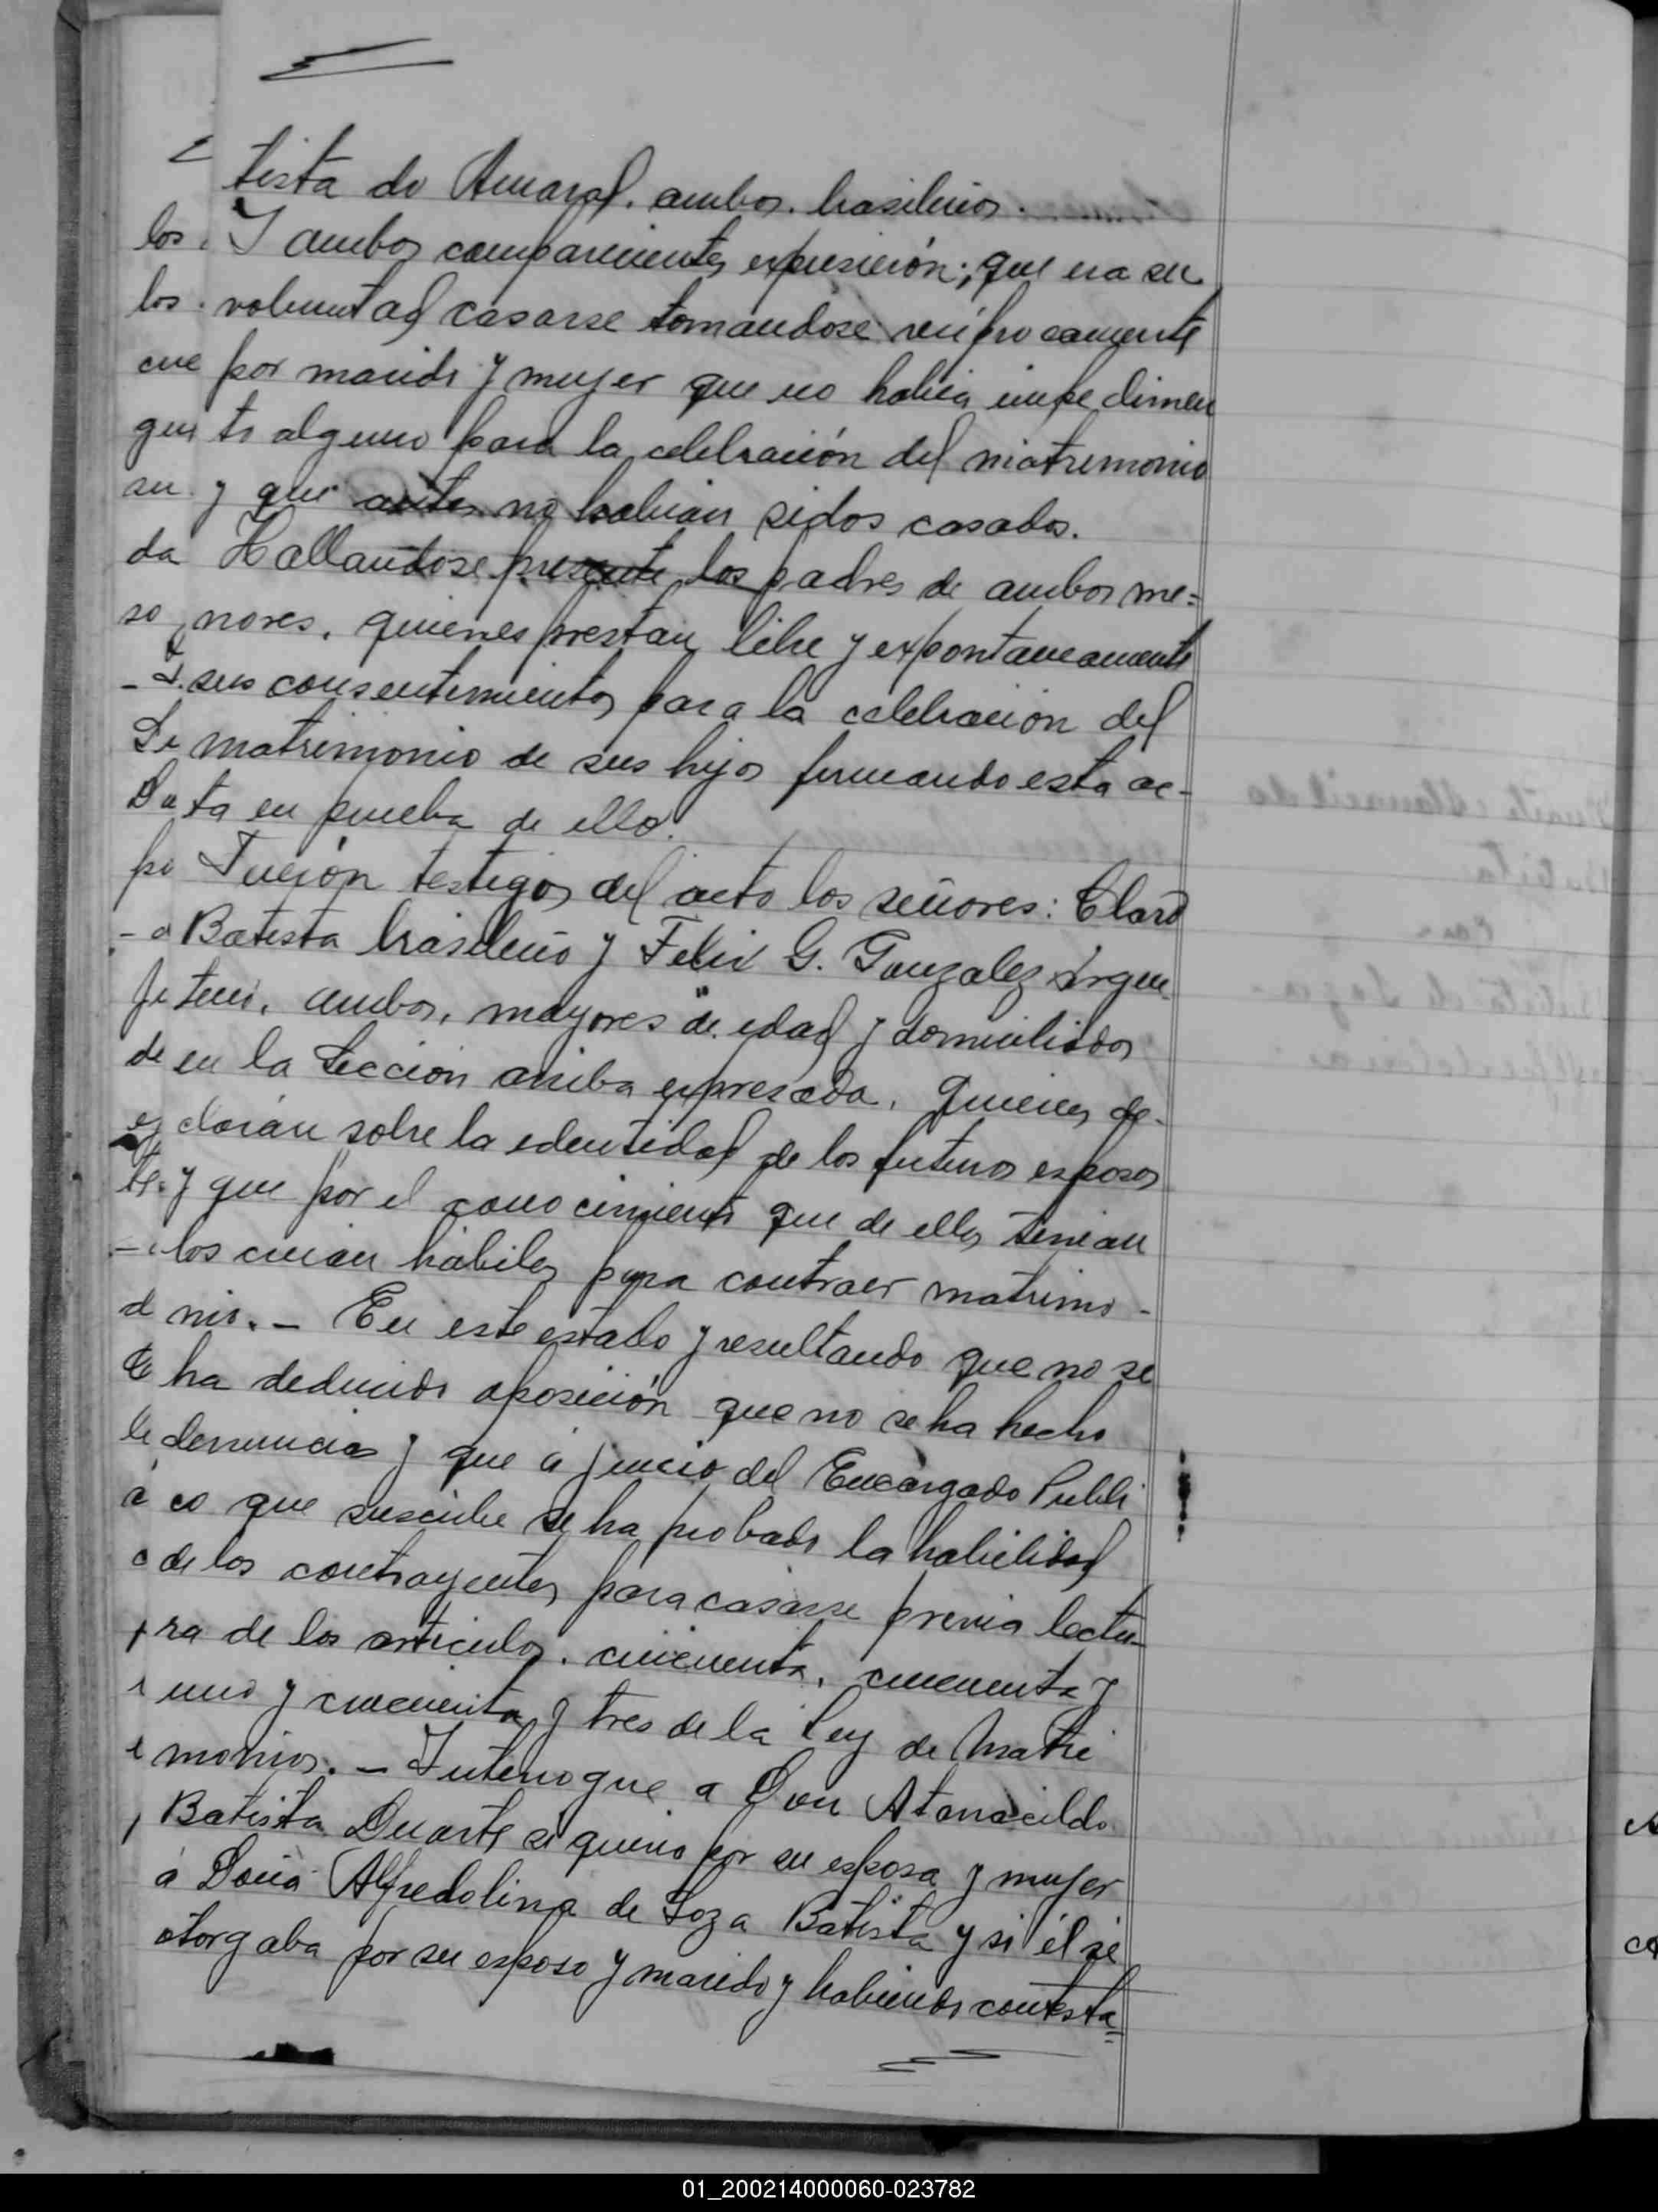 tista do Amaral. ambos. brasileños.
Y ambos comparecientes expusierón; que era su
voluntad casarse tomandose reciprocamente
por marido y mujer que no habia impedimen
to alguno para la celebración del matrimonio
y que antes no habian sidos casados.
Hallandose presente los padres de ambos me=
nores, quienes prestan libre y expontaneamente
sus consentimientos para la celebracion del
matrimonio de sus hijos firmando esta ac-
ta en prueba de ello.
Fuerón testigos del acto los señores: Claro
Batista brasileño y Felix G. Gonzalez Argen
tino, ambos, mayores de edad y domiciliados
en la Seccion arriba expresada, quienes de-
clarán sobre la edentidad de los futuros esposos
y que por el conocimiento que de ellos tenian
los creian habiles para contraer matrimo-
nio. - En este estado y resultando que no se
ha deducido oposición que no se ha hecho
denuncias y que á juicio del Encargado Publi
co que suscribe se ha probado la habilidad
de los contrayentes para casarse previa lectu-
ra de los articulos. cincuenta, cincuenta y
uno y cincuenta y tres de la Ley de Matri
monios. - Interrogue a Don Atanacildo
Batista Duarte si queria por su esposa y mujer
á Doña Alfredolina de Soza Batista y si él se
otorgaba por su esposo y marido y habiendo contesta=
01_200214000060-023782